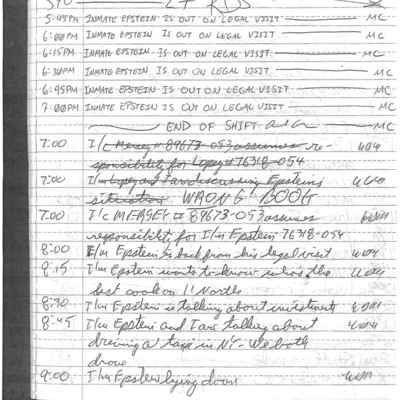 5:45PM INMATE EPSTEIN IS OUT ON LEGAL VISIT MC
6:00PM INMATE EPSTEIN IS OUT ON LEGAL VISIT MC
6:15PM INMATE EPSTEIN IS OUT ON LEGAL VISIT MC
6:30PM INMATE EPSTEIN IS OUT ON LEGAL VISIT MC
6:45PM INMATE EPSTEIN IS OUT ON LEGAL VISIT MC
7:00PM INMATE EPSTEIN IS OUT ON LEGAL VISIT MC
END OF SHIFT MC
7:00 I/c Mersey # 89673-053 assumes re-
sponsibility for Lopez # 76318-054
7:00 I/m Lopez and I are discussing Epstein's
situation WRONG BOOG
7:00 I/c MERSEY # 89673-053 assumes
responsibility for I/m Epstein 76318-054
8:00 I/m Epstein is back from his legal visit
8:15 I/m Epstein wants to know who is the
best cook on 11 North
8:30 I/m Epstein is talking about investments
8:45 I/m Epstein and I are talking about
driving a taxi in NY. We both
drove
9:00 I/m Epstein lying down